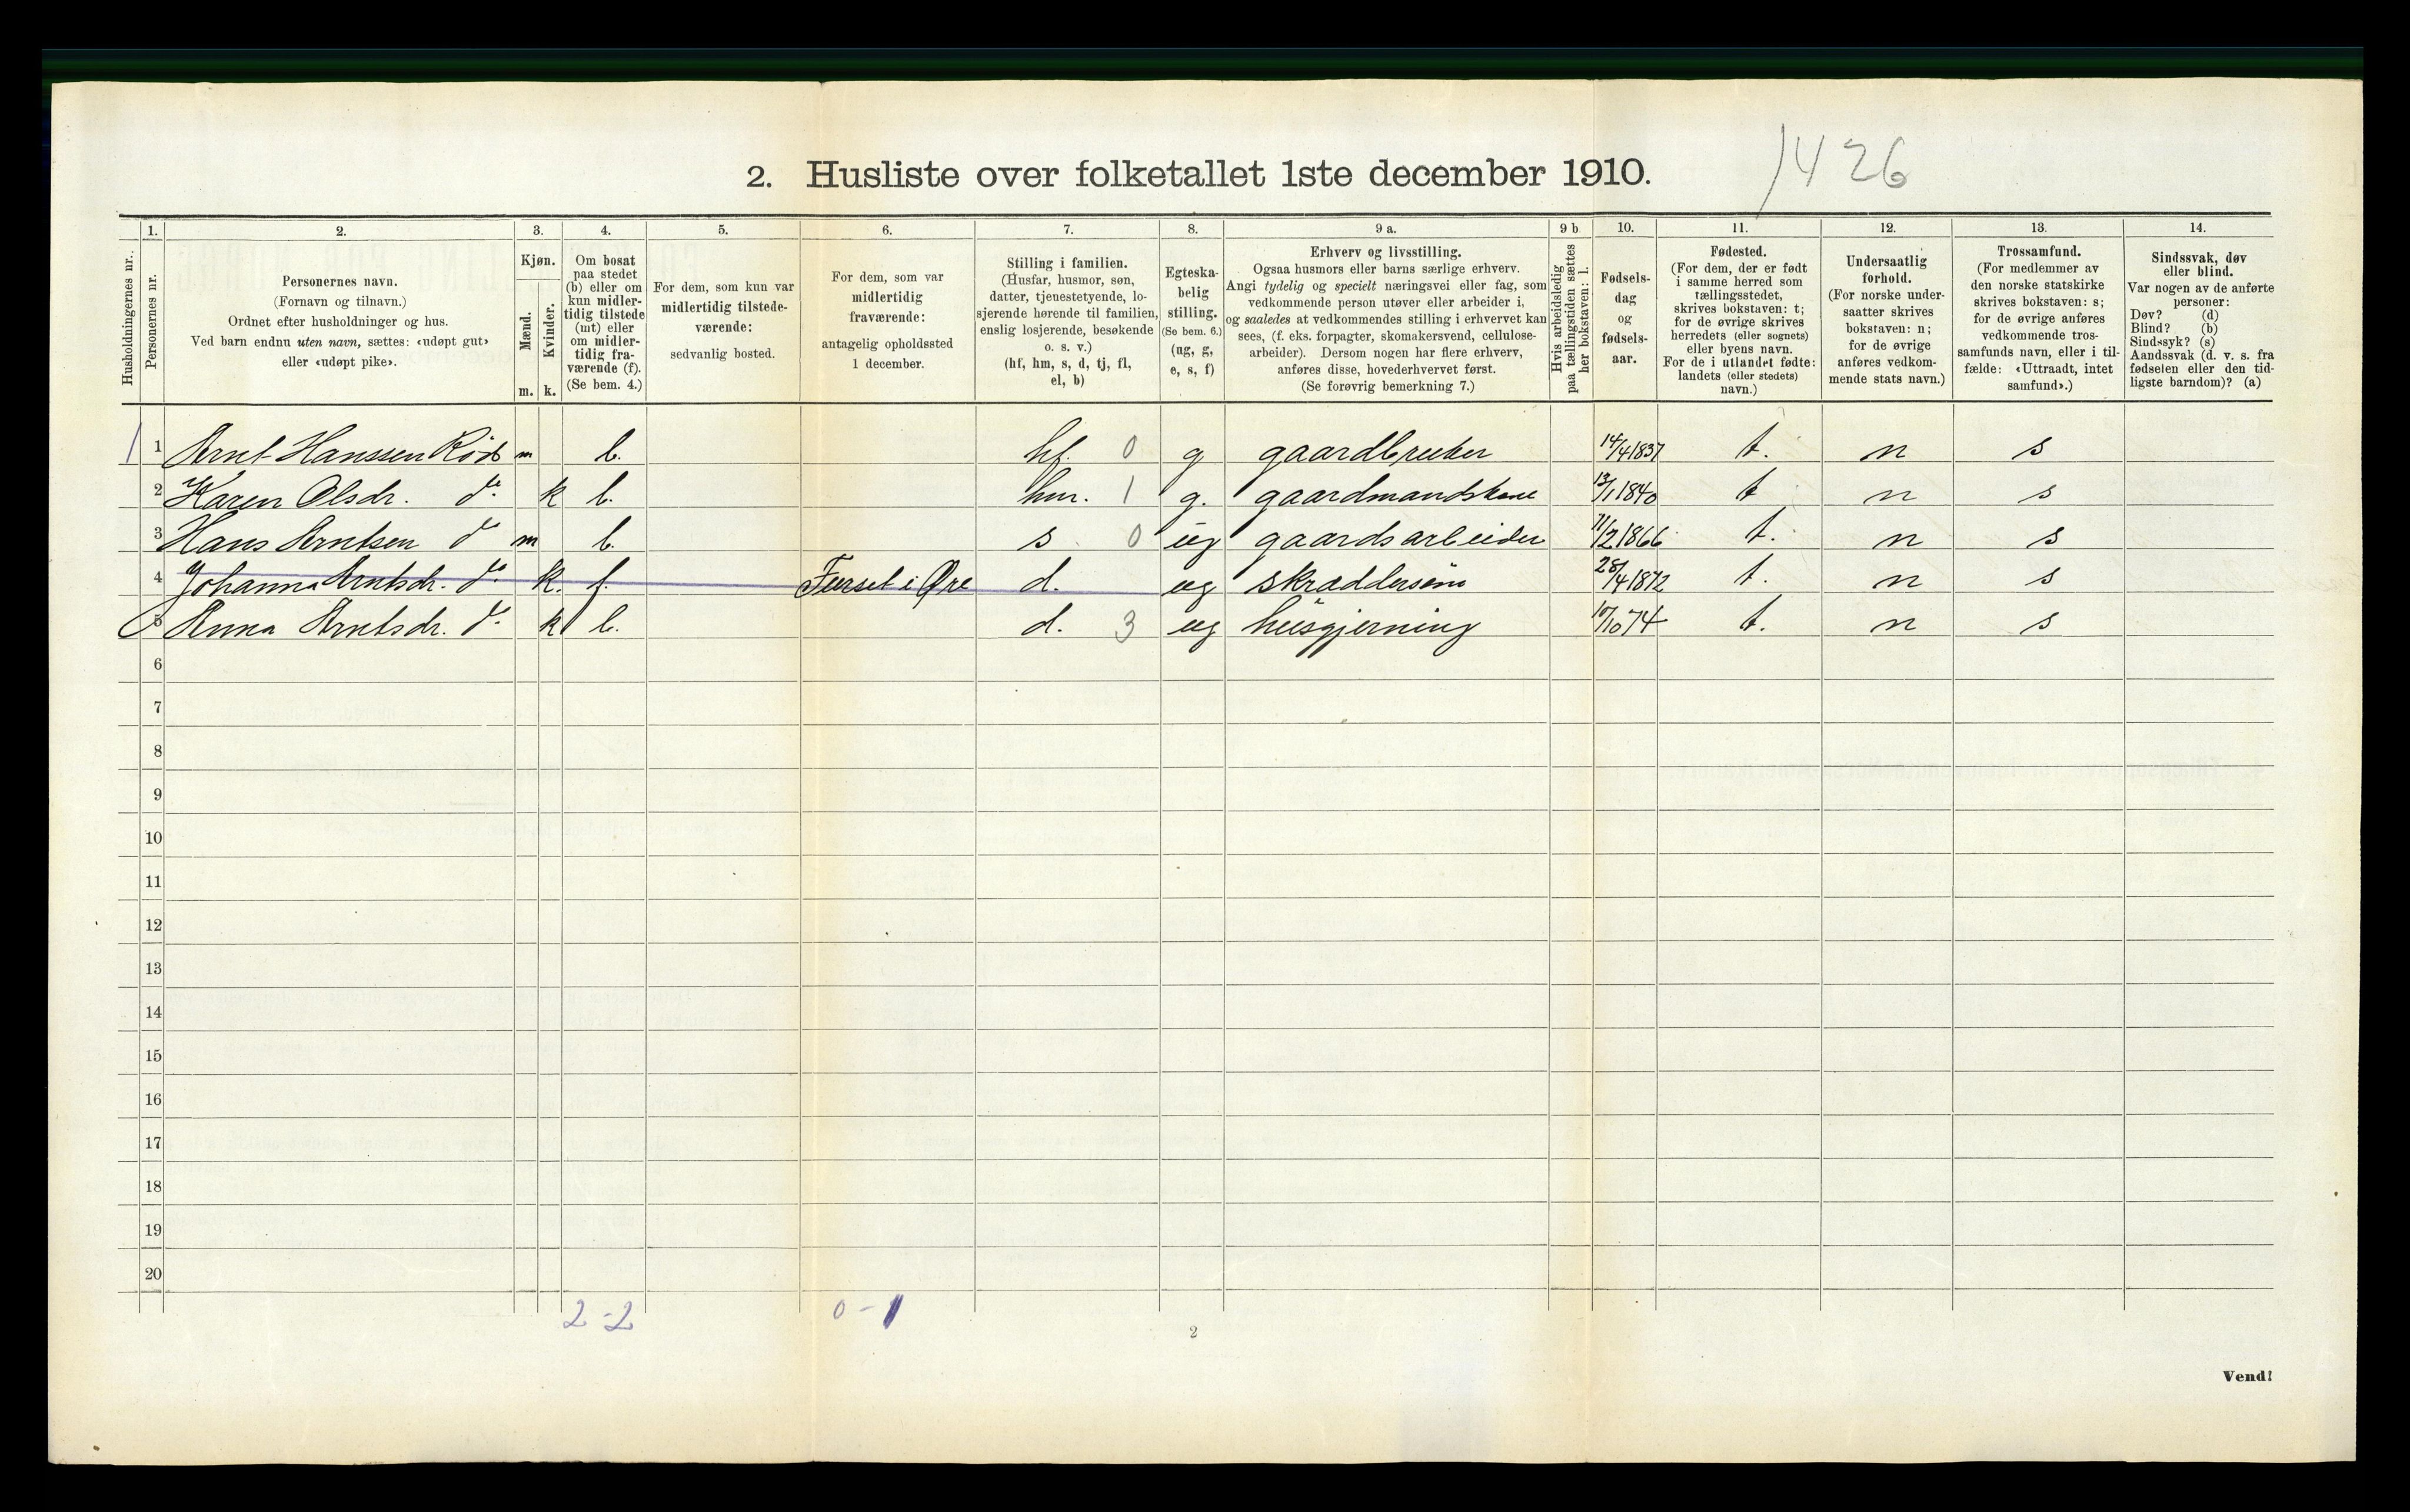 1426
2. Husliste over folketallet 1ste december 1910.
Husholdningernes nr.
1.
Personernes nr.
2.
Personernes navn.
(Fornavn og tilnavn.)
Ordnet efter husholdninger og hus.
Ved barn endnu uten navn, sættes: «udøpt gut»
eller «udøpt pike».
3.
Kjøn.
Mænd.
Kvinder.
m. k.
4.
Om bosat
paa stedet
(b) eller om
kun midler-
tidig tilstede
(mt) eller
om midler-
tidig fra-
værende (f).
(Se bem. 4.)
5.
For dem, som kun var
midlertidig tilstede-
værende:
sedvanlig bosted.
6.
For dem, som var
midlertidig
fraværende:
antagelig opholdssted
1 december.
7.
Stilling i familien.
(Husfar, husmor, søn,
datter, tjenestetyende, lo-
sjerende hørende til familien,
enslig losjerende, besøkende
o. s. v.)
(hf, hm, s, d, tj, fl,
el, b)
8.
Egteska-
belig
stilling.
(Se bem. 6.)
(ug, g,
e, s, f)
9 a.
Erhverv og livsstilling.
Ogsaa husmors eller barns særlige erhverv.
Angi tydelig og specielt næringsvei eller fag, som
vedkommende person utøver eller arbeider i,
og saaledes at vedkommendes stilling i erhvervet kan
sees, (f. eks. forpagter, skomakersvend, cellulose-
arbeider). Dersom nogen har flere erhverv,
anføres disse, hovederhvervet først.
(Se forøvrig bemerkning 7.)
9 b
Hvis arbeidsledig
paa tællingstiden sættes
her bokstaven: l.
10.
Fødsels-
dag
og
fødsels-
aar.
11.
Fødested.
(For dem, der er født
i samme herred som
tællingsstedet,
skrives bokstaven: t;
for de øvrige skrives
herredets (eller sognets)
eller byens navn.
For de i utlandet fødte:
landets (eller stedets)
navn.)
12.
Undersaatlig
forhold.
(For norske under-
saatter skrives
bokstaven: n;
for de øvrige
anføres vedkom-
mende stats navn.)
13.
Trossamfund.
(For medlemmer av
den norske statskirke
skrives bokstaven: s;
for de øvrige anføres
vedkommende tros-
samfunds navn, eller i til-
fælde: «Uttraadt, intet
samfund».)
14.
Sindssvak, døv
eller blind.
Var nogen av de anførte
personer:
Døv? (d)
Blind? (b)
Sindssyk? (s)
Aandssvak (d. v. s. fra
fødselen eller den tid-
ligste barndom)? (a)
1 1 Arnt Hanssen Rød m b. hf. 0 g gaardbruker 14/4 1837 t. n s
2 Karen Olsdr. do. k b. hm. 1 g. gaardmandskone 13/1 1840 t n s
3 Hans Arntsen do m b. s 0 ug gaardsarbeider 11/2 1866 t. n s
4 Johanna Arntsdr. do. k. f. i Øre d. ug skræddersøm 28/4 1872 t. n s
5 Anna Arntsdr. do. k b. d. 3 ug husgjerning 10/10 74 t. n s
6
7
8
9
10
11
12
13
14
15
16
17
18
19
20
2-2 0-1
2
Vend!